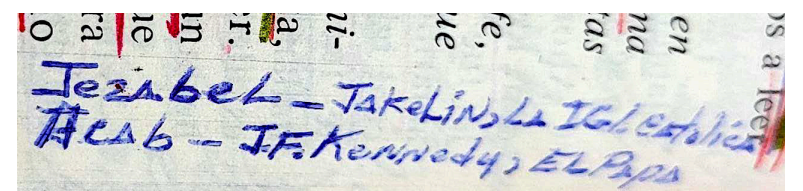 o
ra
ue
un
r.
a,
ui-
ue
fe,
tas
na
en
os a leer
Jezabel - JAKeLin, LA IGL. CAtólicA
ACAb - J.F. Kennedy, EL PApA